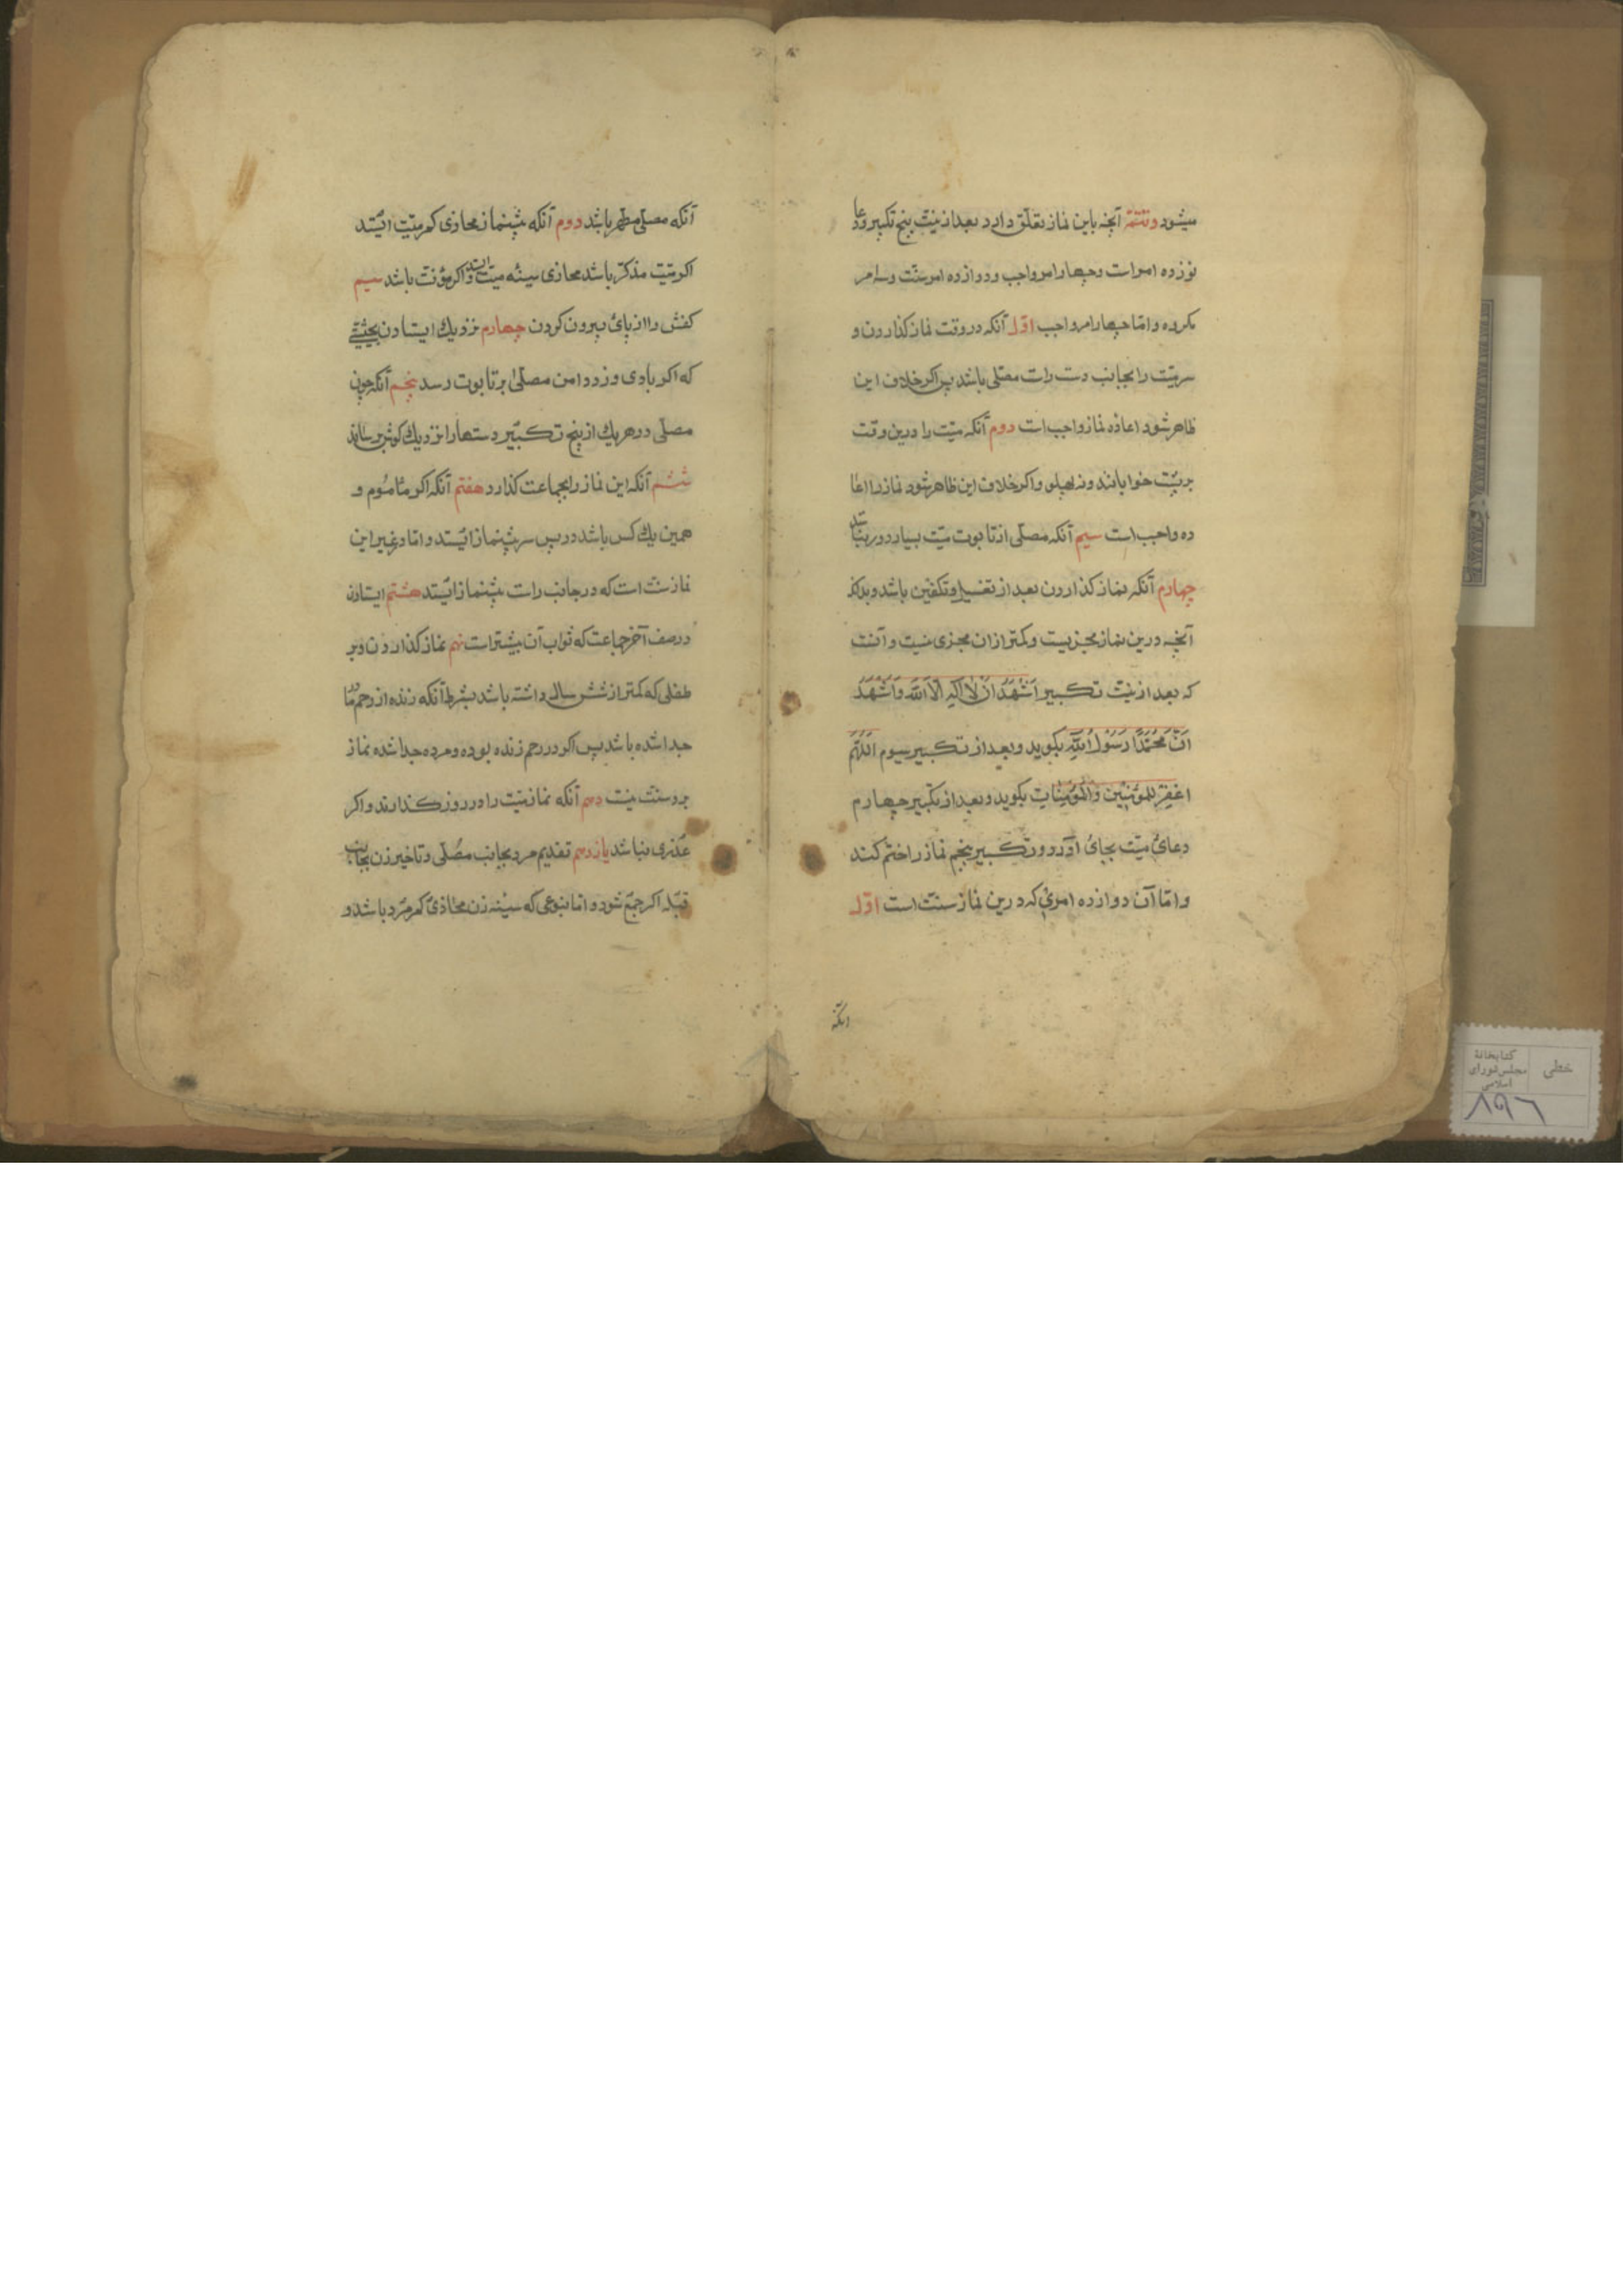 میشود و تتمهٔ آنچه باین نماز تعلّق دارد بعد از نیّت پنج تکبیر و دعا
نوزده امر است و چهار امر واجب و دوازده امر سنّت و سه امر
مکروه و امّا چهار امر واجب اوّل آنکه در وقت نماز کذاردن و
سر میّت را بجانب دست راست مصّلی باشد پس اکر خلاف این
ظاهر شود اعاده نماز واجب است دوم آنکه میّت را درین وقت
بر پشت خوابانند و نه بپهلو و اکر خلاف این ظاهر شود نماز را اعا
ده واجب است سیم آنکه مصلّی از تابوت میّت بسیار دور نباشد
چهارم آنکه نماز کذاردن بعد از تغسیل و تکفین باشد و بدانکه
آنچه درین نماز مجزیست و کمتر از ان مجزی نیست و آنست
که بعد از نیّت تکبیر اَشْهَدُ اَنْ لا اِلٰهَ اِلّا اللّهَ وَاَشْهَدُ
اَنَّ مُحَمَّدًا رَسُولُ اللّهِ بکوید و بعد از تکبیر سیوم اللّهُمَّ
اغفِر لِلمؤمِنِینَ وَالمُؤمِنَاتِ بکوید و بعد از تکبیر چهارم
دعائ میّت بجائ آورد و تکبیر پنجم نماز را ختم کند
و امّا آن دوازده امری که درین نماز سنّت است اوّل
انکه
آنکه مصلّی مطهر باشد دوم آنکه پیشنماز محاذی کمر میّت ایستد
اکر میّت مذکّر باشد محاذی سینه میّت ایستد و اکر مؤنّث باشد سیم
کفش را از پائ بیرون کردن چهارم نزدیك ایستادن بحیثیّتی
که اکر بادی وزد دامن مصلّی بر تابوت رسد پنجم آنکه چون
مصلّی در هر یك از پنج تکبیر دستها را نزدیك کوش برساند
ششم آنکه این نماز را بجماعت کذارد هفتم آنکه اکر مأموم و
همین یك کس باشد در پس سر پیشنماز ایستد و امّا در غیر این
نماز سنّت است که در جانب راست پیشنماز ایستد هشتم ایستادن
در صف آخر جماعت که ثواب آن بیشتر است نهم نماز کذاردن و بر
طفلی که کمتر از شش سال داشته باشد بشرط آنکه زنده از رحم مادر
جدا شده باشد پس اکر در رحم زنده بوده و مرده جدا شده نماز
برو سنّت نیست دهم آنکه نماز میّت را در روز کذارند و اکر
عذری نباشد یازدهم تقدیم مرد بجانب مصلّی و تاخیر زن بجانب
قبله اکر جمع شود و امّا بنوعی که سینه زن محاذی کمر مرد باشد و
خطی
کتابخانهٔ
مجلس شورای
اسلامی